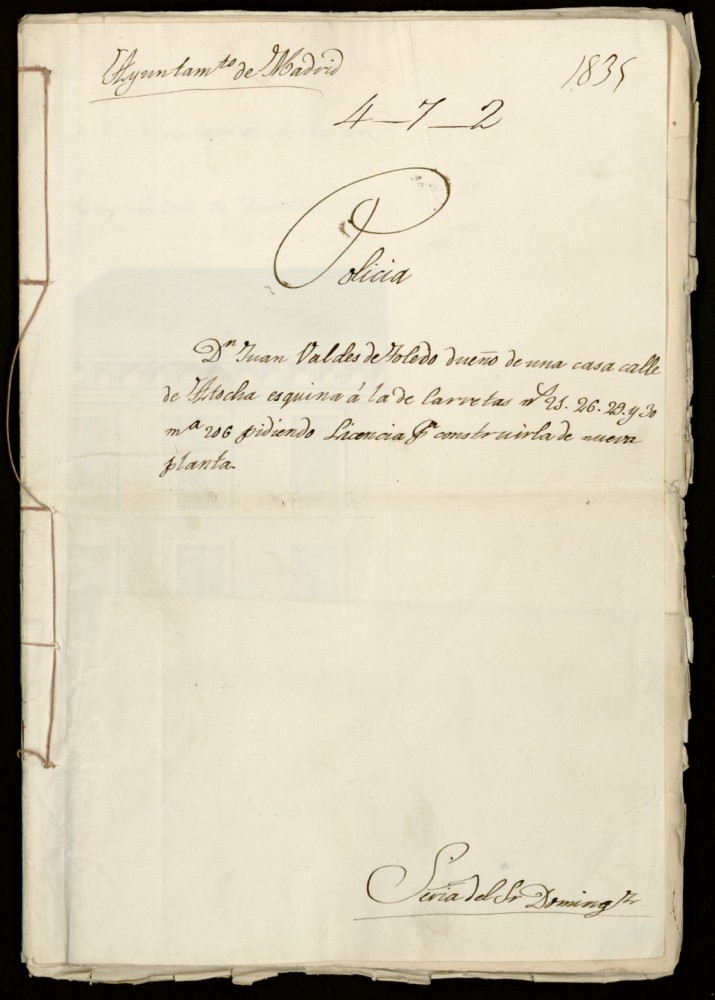 Ayuntamto de Madrid
1835
4-7-2
Policia
Dn Juan Valdes de Toledo dueño de una casa calle
de Atocha esquina á la de Carretas ns 25. 26. 29. y 30
ma 206 pidiendo Licencia pa construirla de nueva
planta.
Secria del Sr Doming